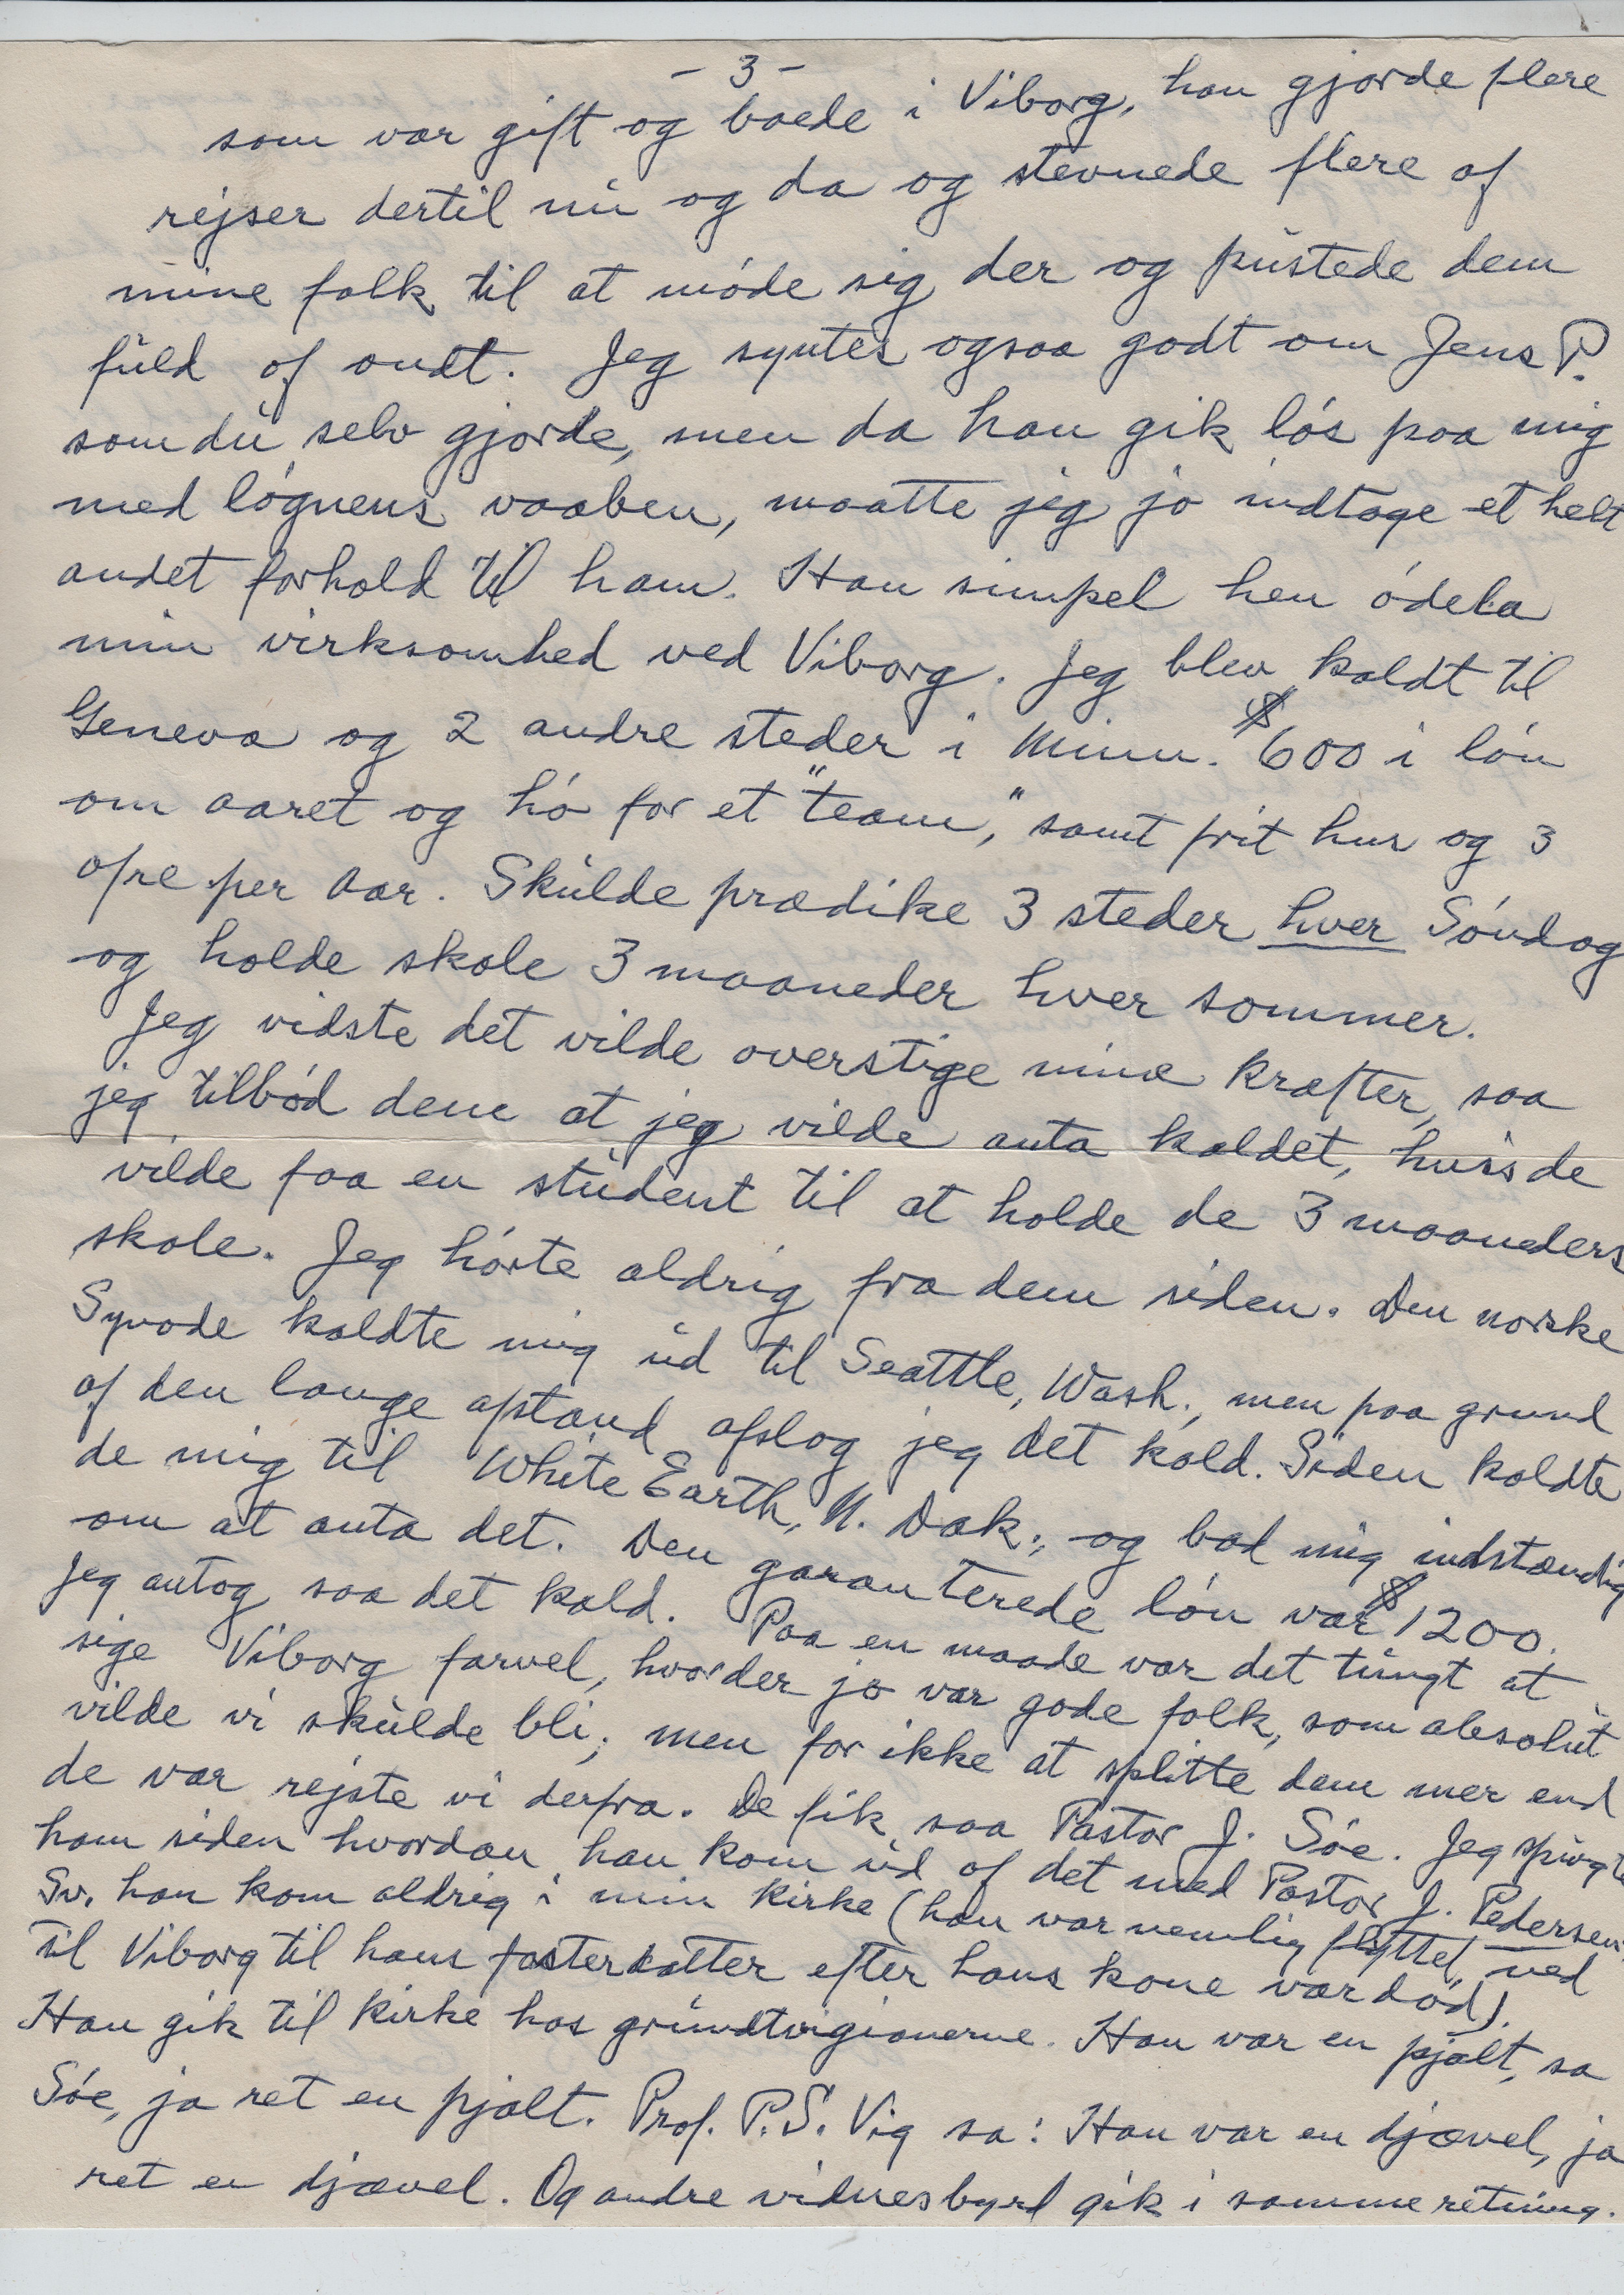 - 3 -
som var gift og boede i Viborg, han gjorde flere
rejser dertil nu og da og stevnede flere af
mine folk til at móde sig der og pustede dem
fuld af ondt. Jeg syntes ogsaa godt om Jens P.
som du selv gjorde, men da han gik lós paa mig
med lógnens vaaben, maatte jeg jo indtage et helt
andet forhold til ham. Han simpel hen ódela
min virksomhed ved Viborg. Jeg blev kaldt til
Geneva og 2 andre steder i Minn. $600 i lón
om aaret og hó for et "team," samt frit hus og 3
ofre per aar. Skulde prædike 3 steder hver Sóndag
og holde skole 3 maaneder hver sommer.
Jeg vidste det vilde overstige mine kræfter, saa
jeg tilbód dem at jeg vilde anta kaldet, hvis de
vilde faa en student til at holde de 3 maaneders
skole. Jeg hórte aldrig fra dem siden. Den norske
Synode kaldte mig ud til Seattle, Wash., men paa grund
af den lange afstand afslog jeg det kald. Siden kaldte
de mig til White Earth, N. Dak., og bad mig indstændig
om at anta det. Den garanterede lón var $1200.
Jeg antog saa det kald. Paa en maade var det tungt at
sige Viborg farvel, hvor der jo var gode folk, som absolut
vilde vi skulde bli; men for ikke at splitte dem mer end
de var rejste vi derfra. De fik saa Pastor J. Sóe. Jeg spurgte
ham siden hvordan han kom ud af det med Pastor J. Pedersen.
Sv. han kom aldrig i min kirke (han var nemlig flyttet ned
til Viborg til hans fosterdatter efter hans kone var dód).
Han gik til kirke hos grundtvigianerne. Han var en pjalt, sa
Sóe, ja ret en pjalt. Prof. P.S. Vig sa: Han var en djævel, ja
ret en djævel. Og andre vidnesbyrd gik i samme retning.